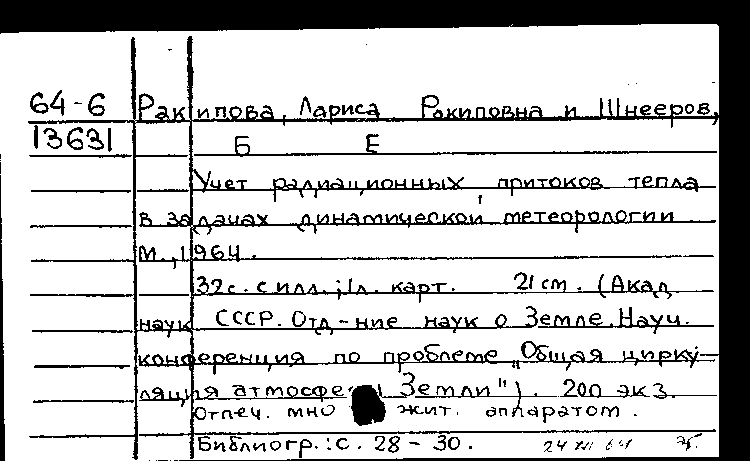 64-6 Ракипова, Лариса Ракиповна и Шнееров,
13631 Б Е
Учет радиационных притоков тепла
в задачах динамической метеорологии
М., 1964.
32с. с илл.; 1л. карт. 21 см. (Акад.
наук СССР. Отд-ние наук о Земле. Науч.
конференция по проблеме „Общая цирку-
ляция атмосфе Земли"). 200 экз.
Отпеч. мно жит. аппаратом.
Библиогр.: с. 28-30. 24 XII 64